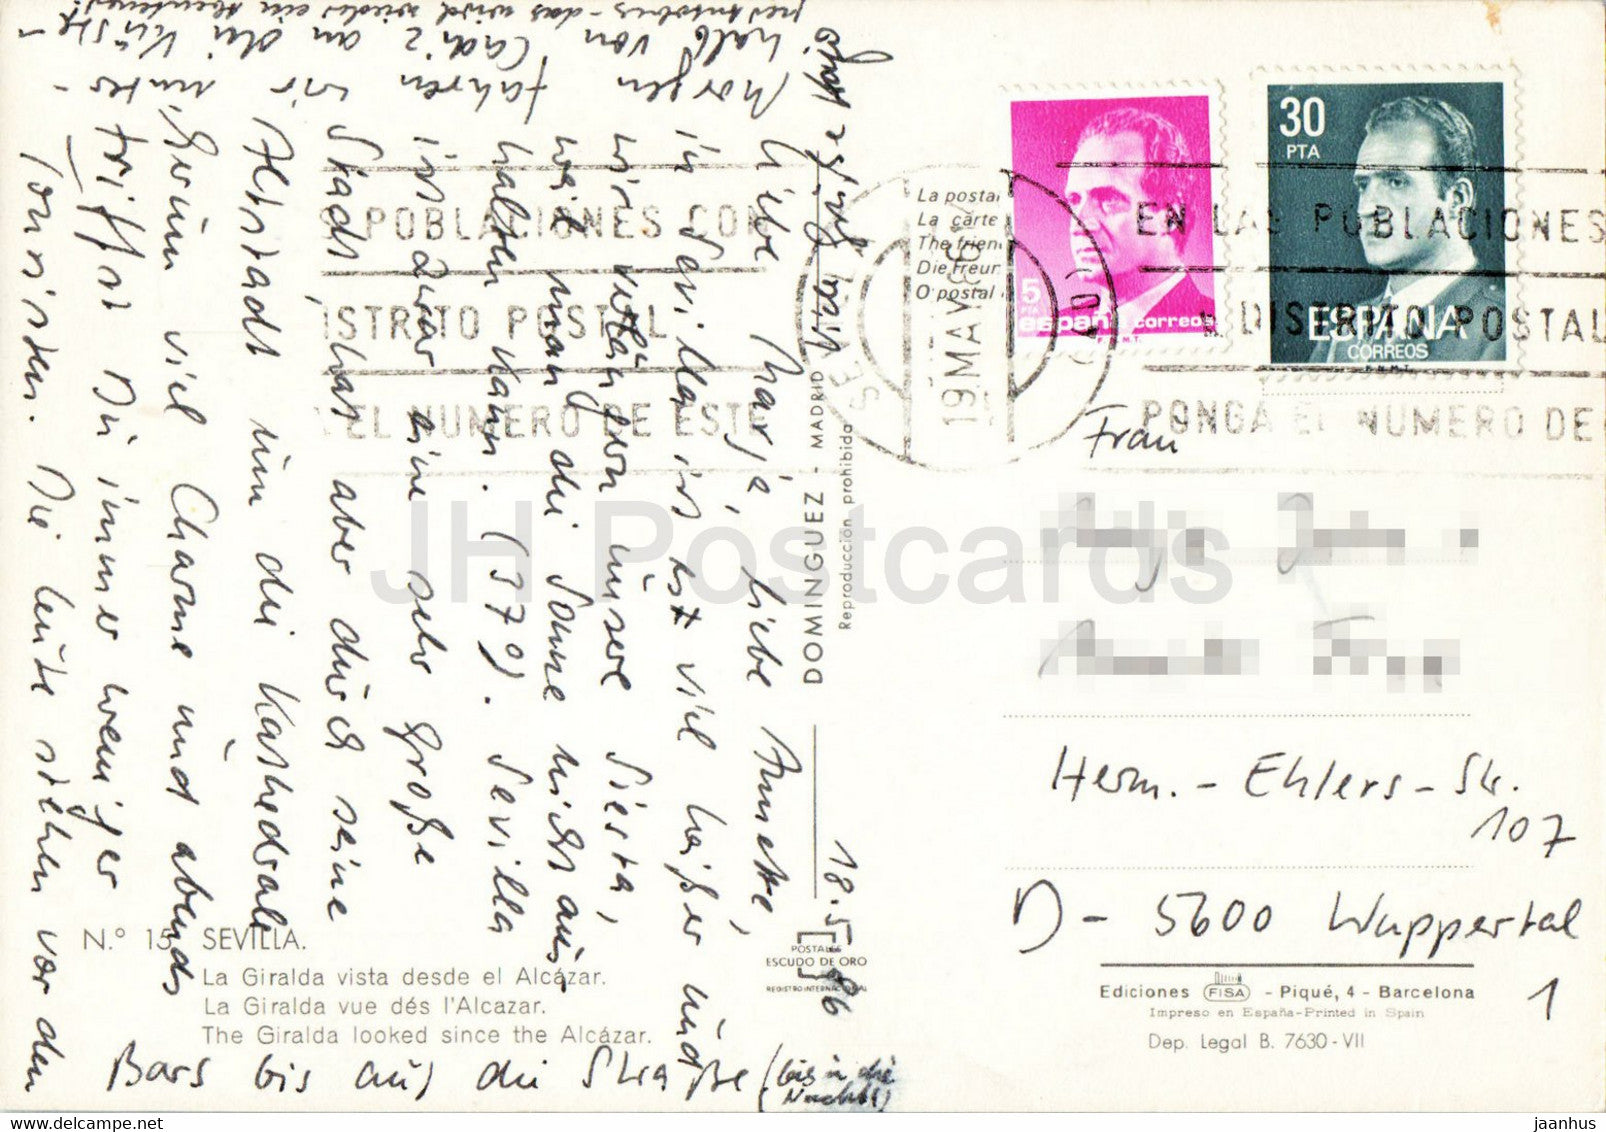 18.5.86
Liebe Marja, liebe Annette,
in Sevilla ist es viel heißer und
wir verlängern unsere Siesta,
weil man die Sonne nicht aus-
halten kann. (37°). Sevilla
ist zwar eine sehr große
Stadt, hat aber durch seine
Altstadt um die Kathedrale
herum viel Charme und abends
trifft Du immer weniger
Touristen. Die Leute stehen vor den
Bars bis auf die Straße (bis in die
Nacht!)
Morgen fahren wir unter-
halb von Cadiz an die Küste -
das wird wieder ein
Viele Grüße
N.º 15 SEVILLA.
La Giralda vista desde el Alcázar.
La Giralda vue dés l'Alcazar.
The Giralda looked since the Alcázar.
DOMINGUEZ - MADRID
Reproducción prohibida
POSTALES
ESCUDO DE ORO
REGISTRO INTERNACIONAL
POBLACIONES CON
ISTRITO POSTAL
EL NUMERO DE ESTE
SE
19 MAY 86
La postal
La carte
The frien
Die Freun
O postal
5
PTA
españa correos
F.N.M.T.
30
PTA
ESPAÑA
CORREOS
F.N.M.T.
EN LAS POBLACIONES
DISTRITO POSTAL
PONGA EL NUMERO DE
Frau
Herm.-Ehlers-Str.
107
D-5600 Wuppertal
1
Ediciones FISA - Piqué, 4 - Barcelona
Impreso en España-Printed in Spain
Dep. Legal B. 7630-VII
JH Postcards
www.delcampe.net
jaanhus